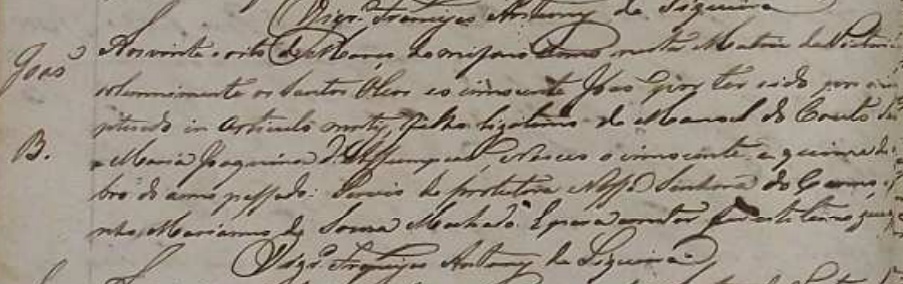 Vigr.º Francisco Antonio de Siqueira
João Aos vinte e oito de Março do mesmo anno nesta Matriz da Victoria
solemnemente os Santos Oleos ao innocente João por ter sido por
ptizado in articulo mortis, filho legitimo de Manoel do Couto
B. e Maria Joaquina d'Assumpção Nasceo o innocente a quinze de
bro do anno passado: Servio de protetora Nossa Senhora do Carmo, e
nho, Marianno de Souza Machado. E para constar fiz este termo que
Vigr.º Francisco Antonio de Siqueira